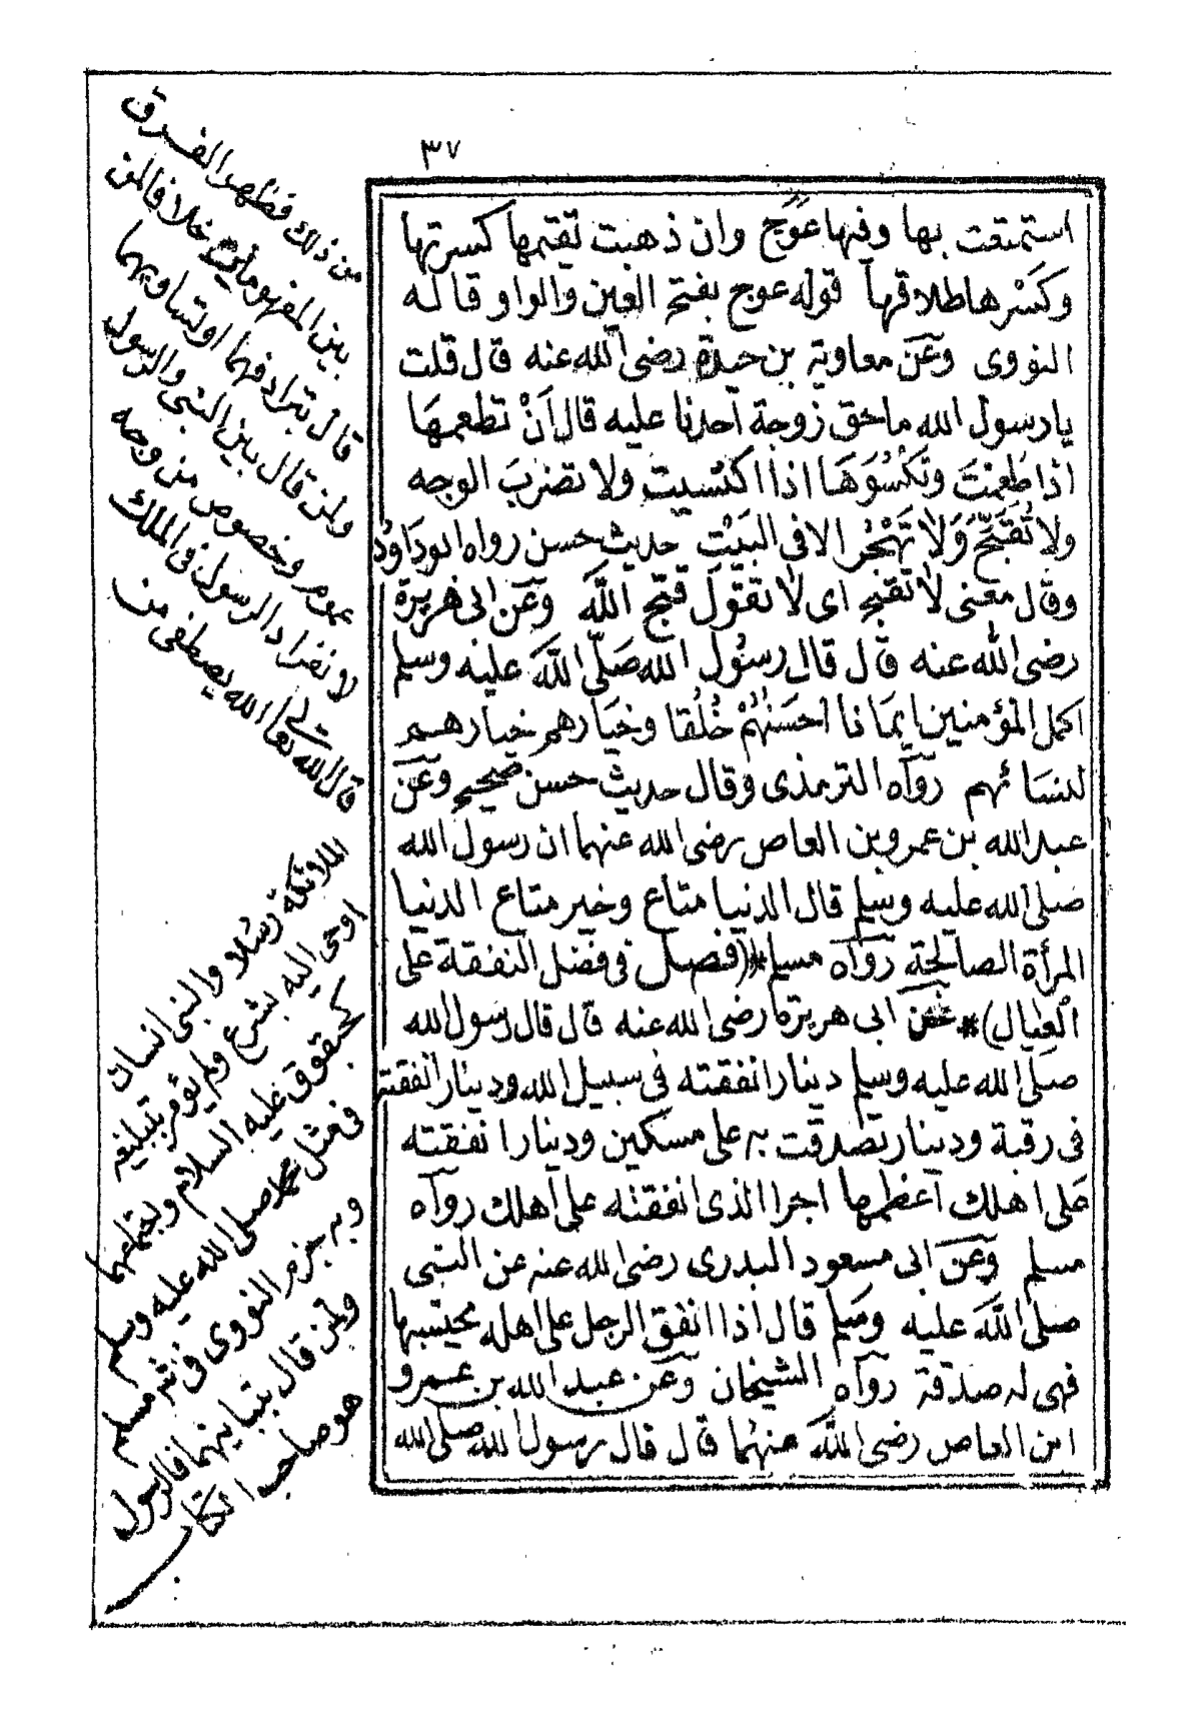 ٣٧
استمتعت بها وفيها عوج وان ذهبت تقيمها كسرتها
وكسرها طلاقها قوله عوج بفتح العين والواو قاله
النووى وعن معاوية بن حيدة رضى الله عنه قال قلت
يا رسول الله ما حق زوجة أحدنا عليه قال أنْ تطعمها
اذا طعمت وتكسوها اذا اكتسيت ولا تضرب الوجه
ولا تُقَبِّحْ وَلا تَهْجُر الا فى البَيْتِ حديث حسن رواه ابو داوُد
وقال معنى لا تقبح اى لا تقول قبح اللَّه وعن ابى هريرة
رضى الله عنه قال قال رسُول الله صَلَّى اللَّه عليه وسلم
اكمل المؤمنين ايمانا احسَنهُمْ خُلُقا وخيارهم خيارهم
لنسائهم رواه الترمذى وقال حديث حسن صحيح وعن
عبد الله بن عمرو بن العاص رضى الله عنهما ان رسول الله
صلى الله عليه وسلم قال الدنيا متاع وخير متاع الدنيا
المرأة الصالحة رواه مسلم*(فصل فى فضل النفقة على
العيال)* عن ابى هريرة رضى الله عنه قال قال رسول الله
صلى الله عليه وسلم دينار انفقته فى سبيل الله ودينار انفقته
فى رقبة ودينار تصدقت به على مسكين ودينار انفقته
على اهلك أعظمها اجرا الذى انفقته على أهلك رواه
مسلم وعن ابى مسعود البدرى رضى الله عنه عن النبى
صلى اللَّه عليه وسلم قال اذا انفق الرجل على اهله يحتسبها
فهى له صدقة رواه الشيخان وعن عبد الله بن عمرو
ابن العاص رضى اللَّه عنهُما قال قال رسول الله صلى الله
من ذلك فظهر الفرق
بين المفهومين خلافا لمن
قال بترادفهما او تساويهما
ولمن قال بين النبى والرسول
عموم وخصوص من وجه
لانفراد الرسول فى الملك
قال الله تعالى الله يصطفى من
الملائكة رُسُلا والنبى انسان
اوحى اليه بشرع ولم يؤمر بتبليغه
كحقوق عليه السلام ويجتمعهما
فى مثل محمد صلى الله عليه وسلم
وبه جزم النووى فى شر مسلم
ولمن قال بتباينهما فالرسول
هو صاحب الكتاب